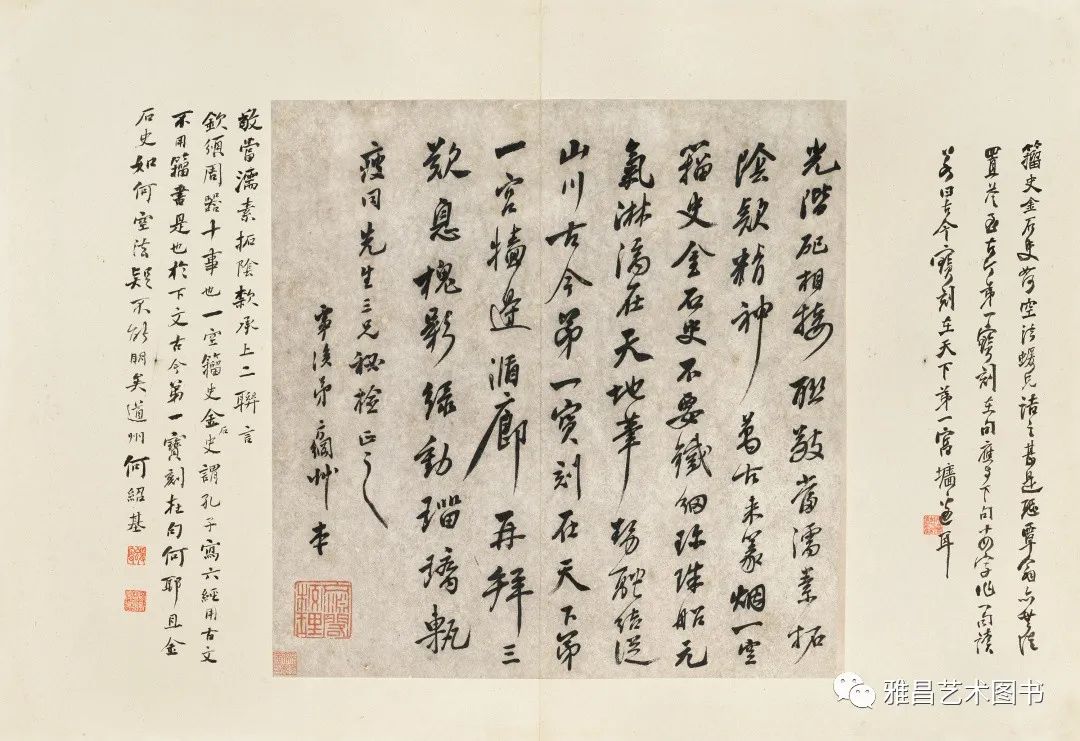 籀史金石史前空法蝯兄詰之甚是恐覃翁亦無從
置答至古今第一寶刻在句應與下句字作一句讀
若曰古今寶刻在天下第一宮墻邊耳
光階戺相接聯敬當濡素拓
陰款精神萬古來篆煙一空
籀史金石史不要鐵網珎珠船元
氣淋漓在天地筆勢結從
山川古今第一寶刻在天下第
一宮墻邊循廊再拜三
歎息槐影綠動瑠璃甎
瘦同先生三兄秘檢正之
覃溪弟方綱艸本
敬當濡素拓陰款承上二聯言
欽頒周器十事也一空籀史金石史謂孔子寫六經用古文
不用籀書是也於下文古今第一寶刻在句何耶且金
石史如何空法疑不能明矣道州何紹基
雅昌艺术图书